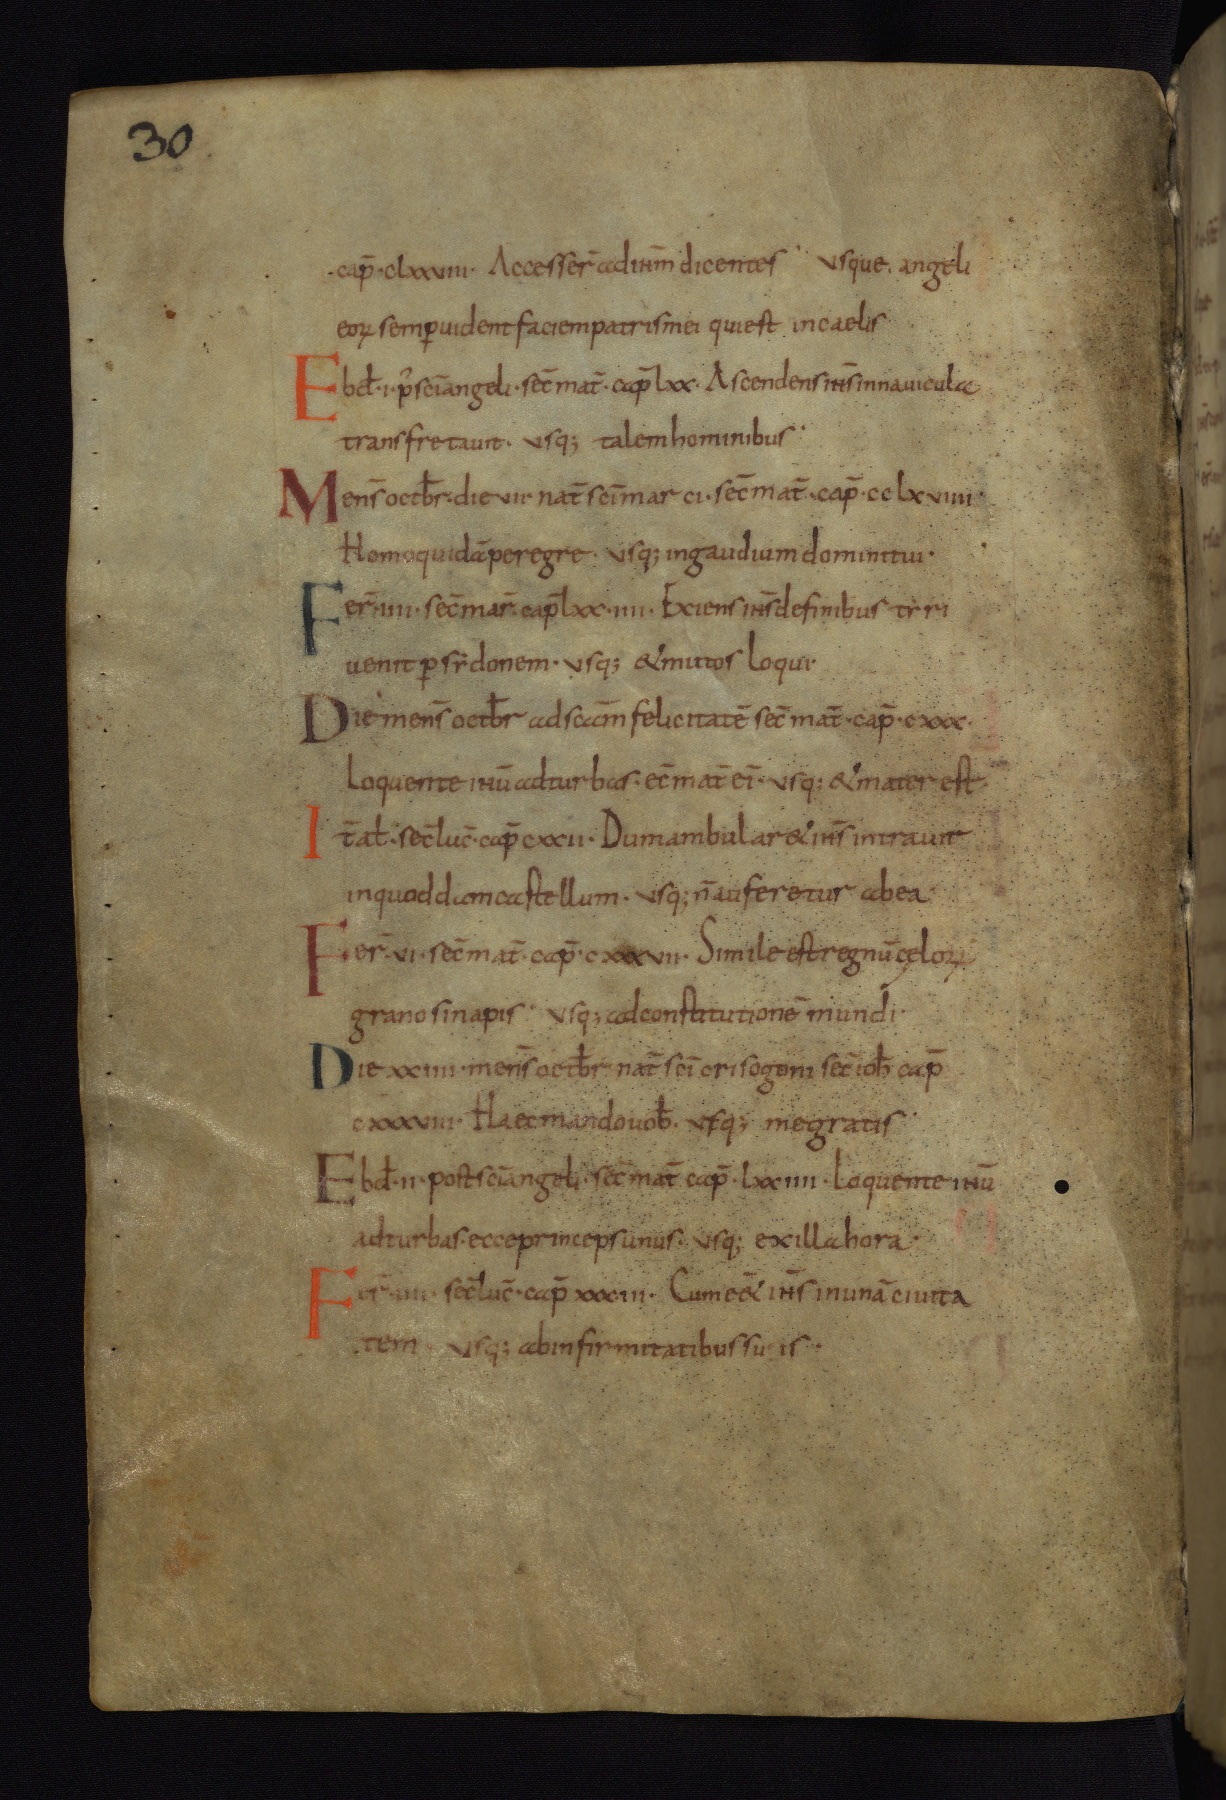 30
cap̄ · clxxviii · Accesser̄ ad ihm̄ dicentes usque angeli
eoꝝ semꝑ uident faciem patris mei qui est in caelis
Ebd̄ · i · p̄ sc̄i angeli · sec̄ mat̄ · cap̄ lxx · Ascendens ihs̄ in nauicula
transfretauit · usq; talem hominibus
Mens̄ octb̄r · die vii · nat̄ sc̄i marci · sec̄ mat̄ · cap̄ · cclxviiii ·
Homo quidā peregre · usq; in gaudium domini tui ·
Fer̄ · iiii · sec̄ mar̄ · cap̄ lxx · iiii · Exiens ihs̄ de finibus tyri
uenit ꝑ sȳdonem · usq; & mutos loqui
Die mens̄ octb̄r ad scām felicitatē sec̄ mat̄ · cap̄ · cxxx ·
Loquente ihū ad turbas · ec̄ mat̄ ei · usq; & mater est
It̄ at̄ · sec̄ luc̄ · cap̄ cxcii · Dum ambular& ihs̄ intrauit
in quoddam castellum · usq; n̄ auferetur ab ea
Fer̄ · vi · sec̄ mat̄ · cap̄ · cxxxvii · Simile est regnū cęloꝝ
grano sinapis usq; ad constitutionē mundi ·
Die xxiiii · mens̄ octb̄r nat̄ sc̄i crisogoni sec̄ ioh̄ cap̄
cxxxviii · Haec mando uob̄ · usq; me gratis
Ebd̄ · ii · post sc̄i angeli · sec̄ mat̄ cap̄ · lxxiiii · Loquente ihū
ad turbas · ecce princeps unus · usq; ex illa hora ·
Fer̄ · iiii · sec̄ luc̄ · cap̄ xxxiii · Cum eē& ihs̄ in unā ciuita
tem · usq; ab infirmitatibus suis ·